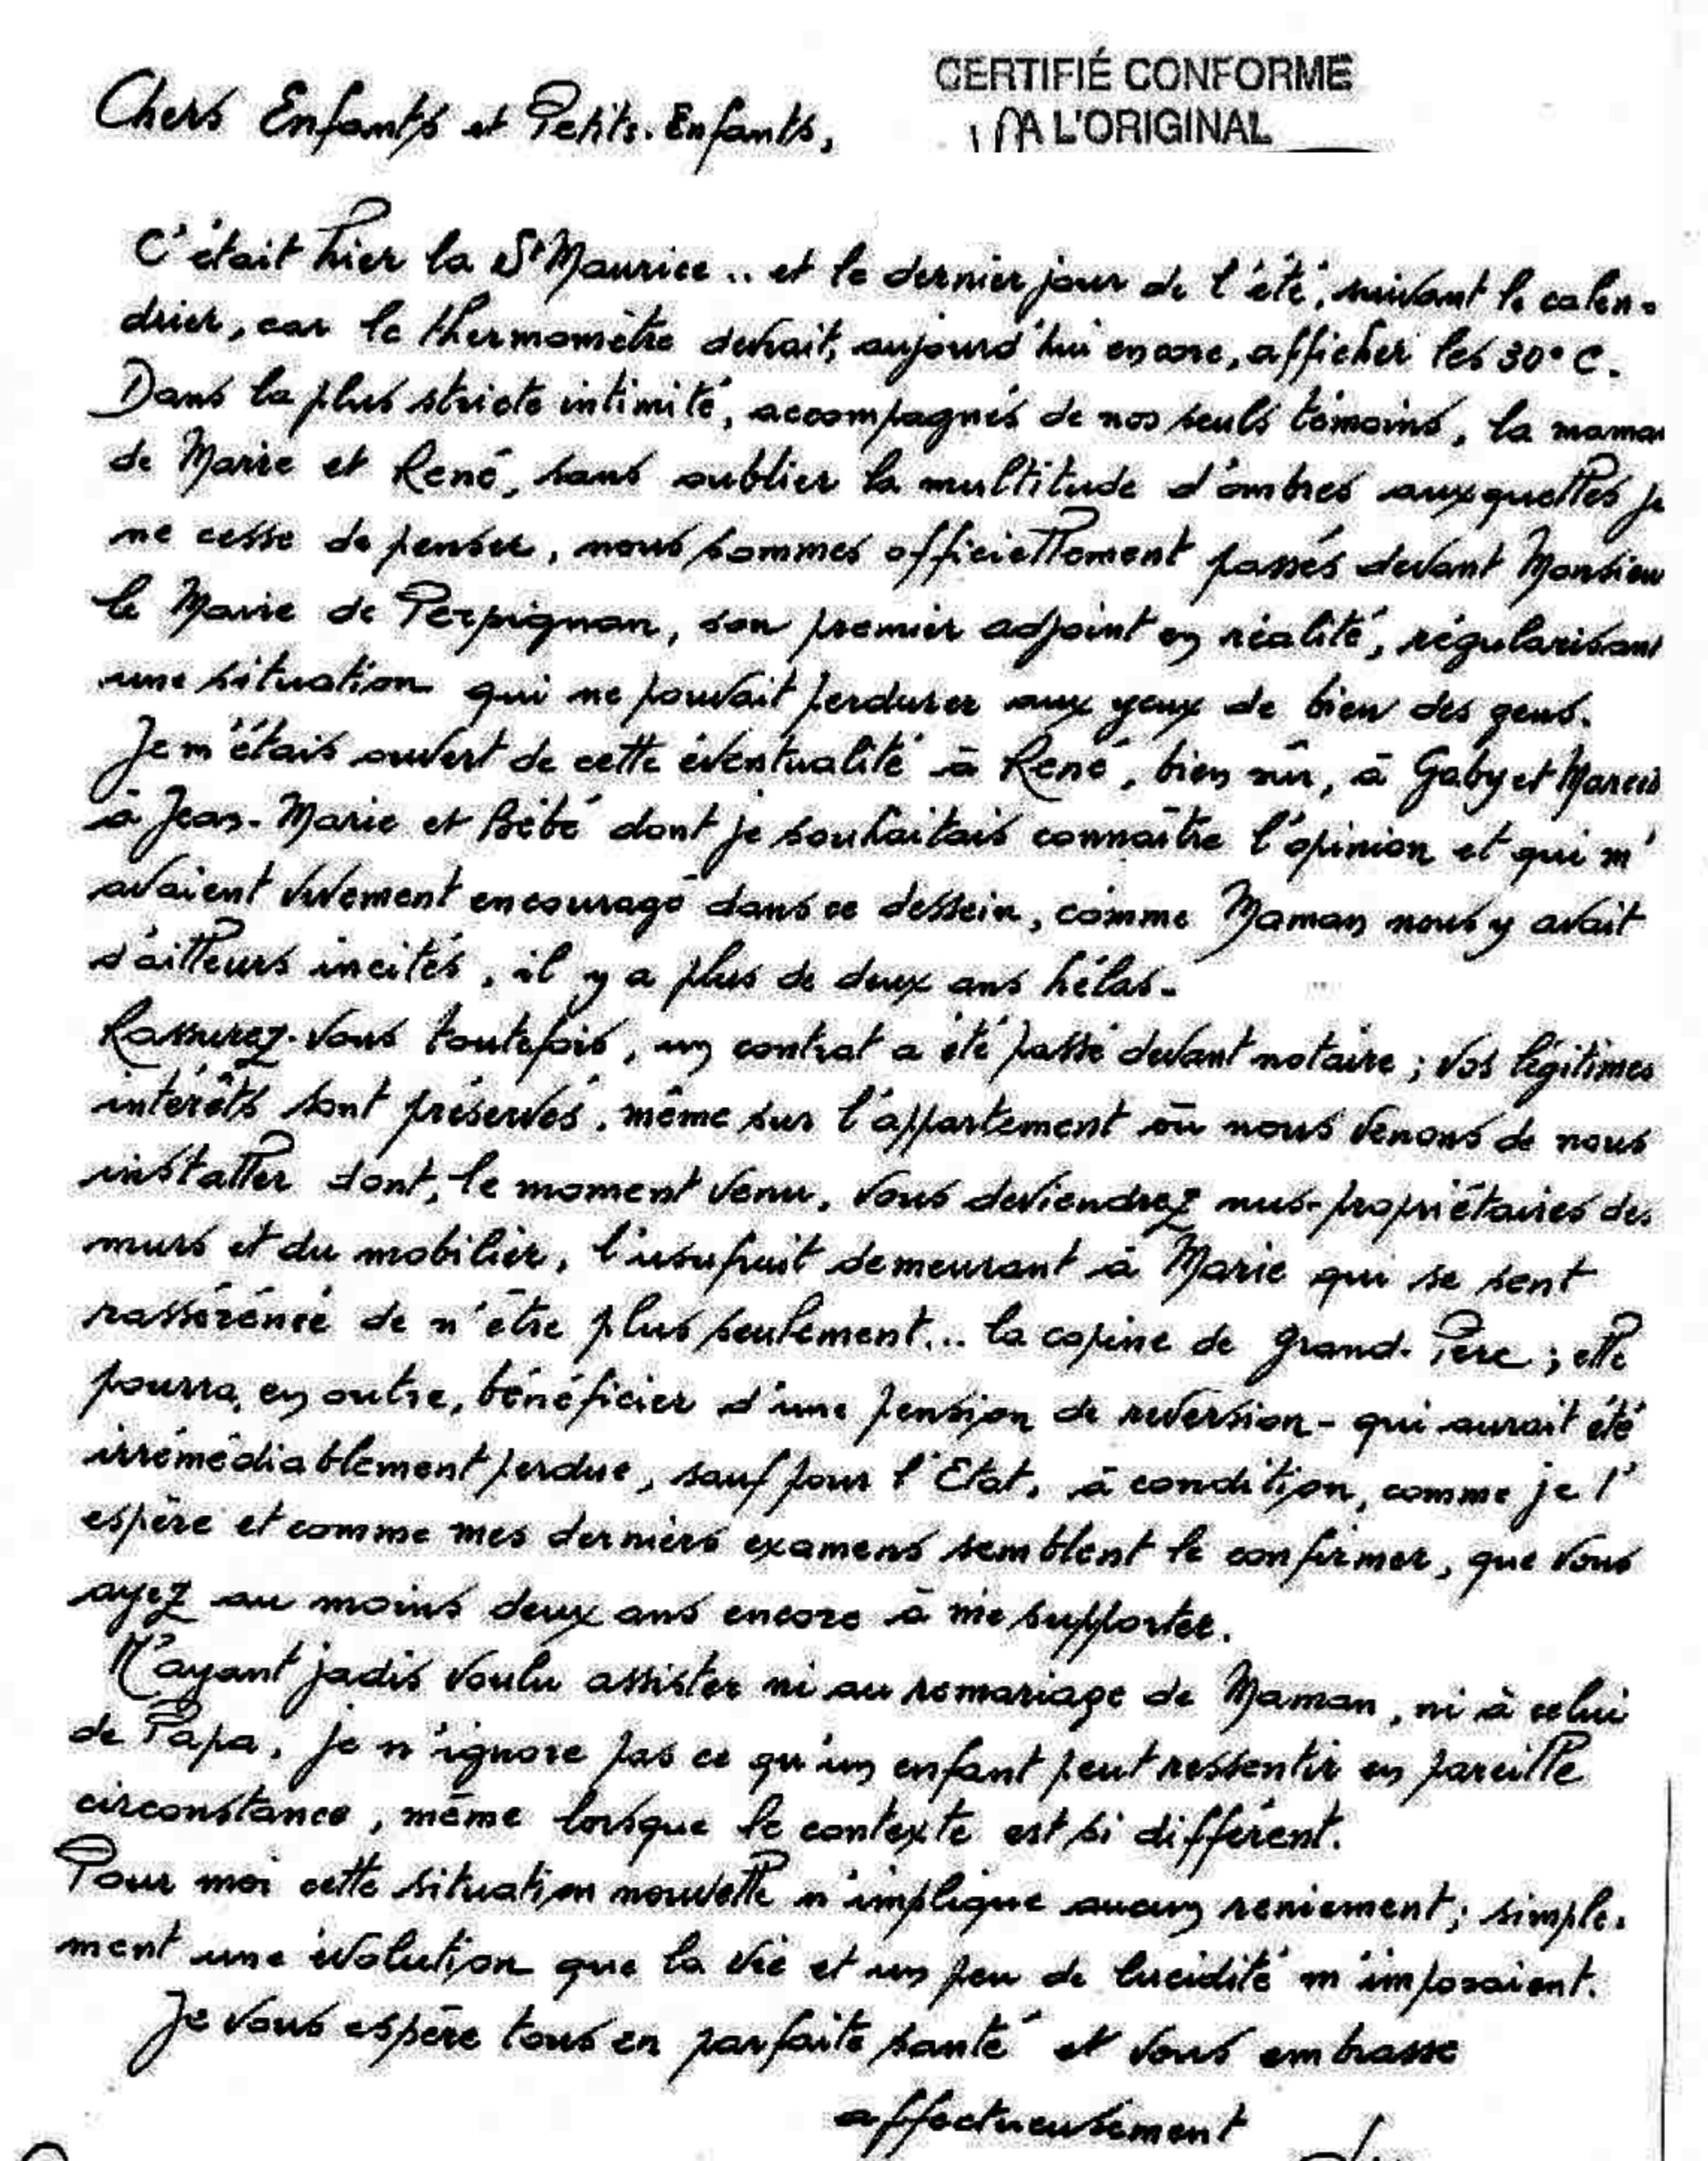 CERTIFIÉ CONFORME
A L'ORIGINAL
Chers Enfants et Petits-Enfants,
C'était hier la St Maurice .. et le dernier jour de l'été, suivant le calen-
drier, car le thermomètre devrait, aujourd'hui encore, afficher les 30° C.
Dans la plus stricte intimité, accompagnés de nos seuls témoins, la maman
de Marie et René, sans oublier la multitude d'ombres auxquelles je
ne cesse de penser, nous sommes officiellement passés devant Monsieur
le Maire de Perpignan, son premier adjoint en réalité, régularisant
une situation qui ne pouvait perdurer aux yeux de bien des gens.
Je m'étais ouvert de cette éventualité à René, bien sûr, à Gaby et
à Jean-Marie et Bébé dont je souhaitais connaître l'opinion et qui m'
avaient vivement encouragé dans ce dessein, comme Maman nous y avait
d'ailleurs incités, il y a plus de deux ans hélas.
Rassurez-vous toutefois, un contrat a été passé devant notaire ; vos légitimes
intérêts sont préservés, même sur l'appartement où nous venons de nous
installer dont, le moment venu, vous deviendrez nus-propriétaires des
murs et du mobilier, l'usufruit demeurant à Marie qui se sent
rassérénée de n'être plus seulement... la copine de Grand-Père ; elle
pourra, en outre, bénéficier d'une pension de reversion - qui aurait été
irrémédiablement perdue, sauf pour l'Etat, à condition, comme je l'
espère et comme mes derniers examens semblent le confirmer, que vous
ayez au moins deux ans encore à me supporter.
N'ayant jadis voulu assister ni au remariage de Maman, ni à celui
de Papa, je n'ignore pas ce qu'un enfant peut ressentir en pareille
circonstance, même lorsque le contexte est si différent.
Pour moi cette situation nouvelle n'implique aucun reniement ; simple-
ment une évolution que la vie et un peu de lucidité m'imposaient.
Je vous espère tous en parfaite santé et vous embrasse
affectueusement